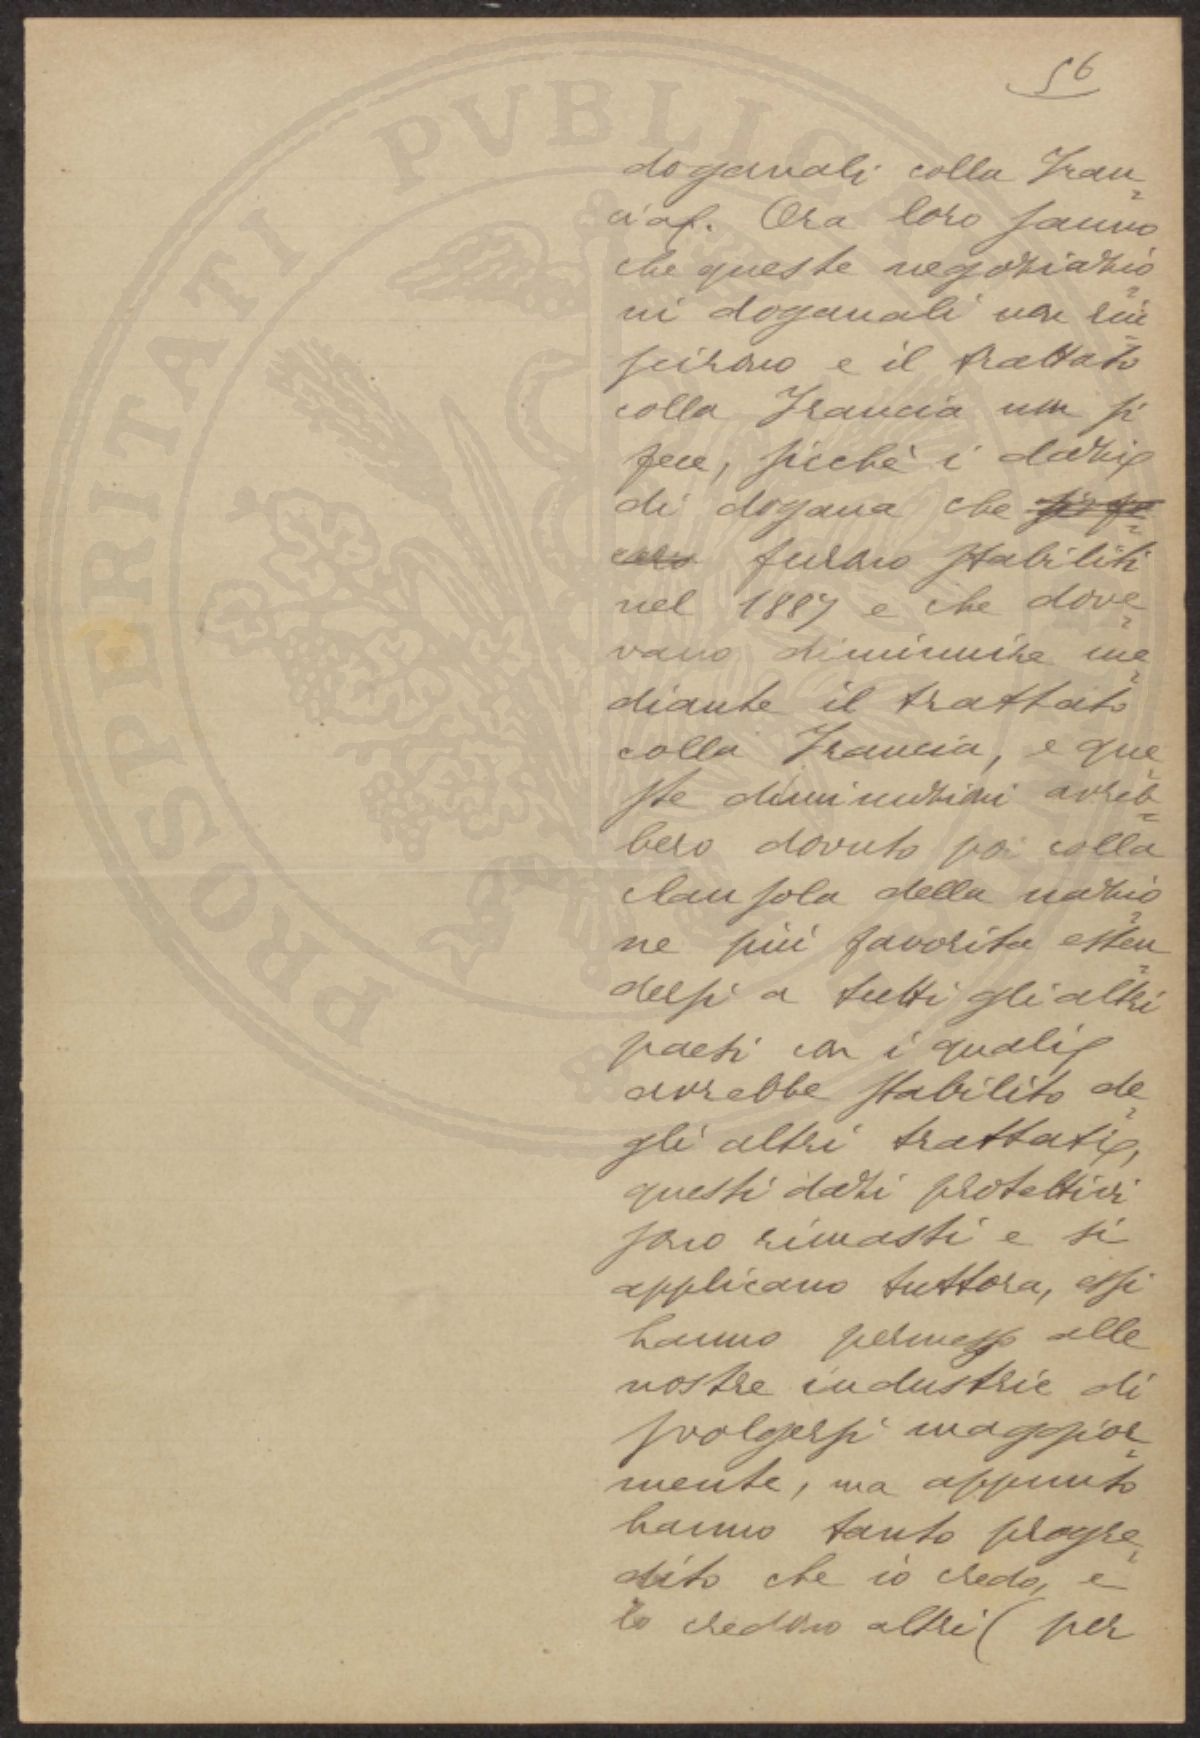 56
doganali colla Fran=
cia. Ora loro sanno
che queste negoziazio=
ni doganali non riu=
scirono e il trattato
colla Francia non si
fece, sicchè i dazii
di dogana che si fe=
cero furono stabiliti
nel 1887 e che dove=
vano diminuire me=
diante il trattato
colla Francia, e que=
ste diminuzioni avreb=
bero dovuto poi colla
clausola della nazio=
ne più favorita esten=
dersi a tutti gli altri
paesi con i quali
avrebbe stabilito de=
gli altri trattati,
questi dazi protettivi
sono rimasti e si
applicano tuttora, essi
hanno permesso alle
nostre industrie di
svolgersi maggior=
mente, ma appunto
hanno tanto progre=
dito che io credo, e
lo credono altri ( per
PROSPERITATI PVBLICAE